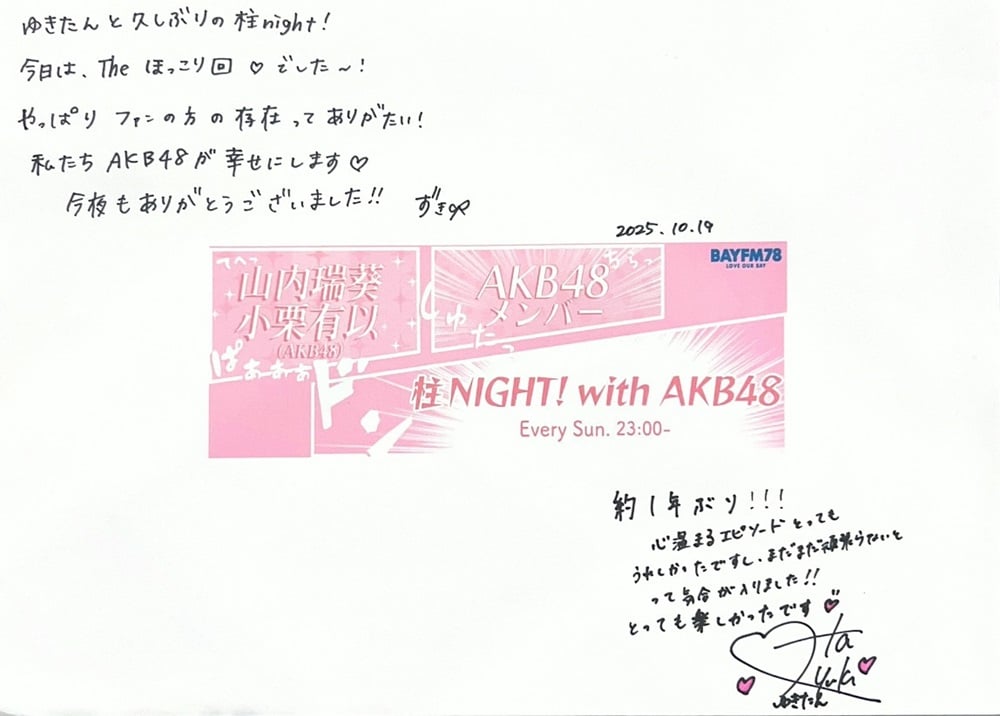 ゆきたんと久しぶりの柱night!
今日は、The ほっこり回♡でした〜!
やっぱり ファンの方の存在って ありがたい!
私たち AKB48が幸せにします♡
今夜もありがとうございました!! ずき
2025.10.19
てへっ
山内瑞葵
小栗有以
(AKB48)
ぱぁーぁぁぁ
AKB48
メンバー
ちらっ
しゅたっ
BAYFM78
LOVE OUR BAY
ドン
柱NIGHT! with AKB48
Every Sun. 23:00-
約1年ぶり!!!
心温まるエピソードとっても
うれしかったですし、まだまだ頑張らないと
って気合が入りました!!
とっても楽しかったです
Ota
Yuki
ゆきたん